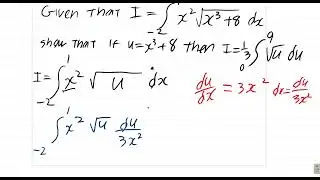 Given that I = ∫₋₂¹ x² √(x³+8) dx
show that if u = x³+8 then I = 1/3 ∫₀⁹ √u du
I = ∫₋₂¹ x² √u dx
du/dx = 3x² dx = du/3x²
∫₋₂¹ x² √u du/3x²